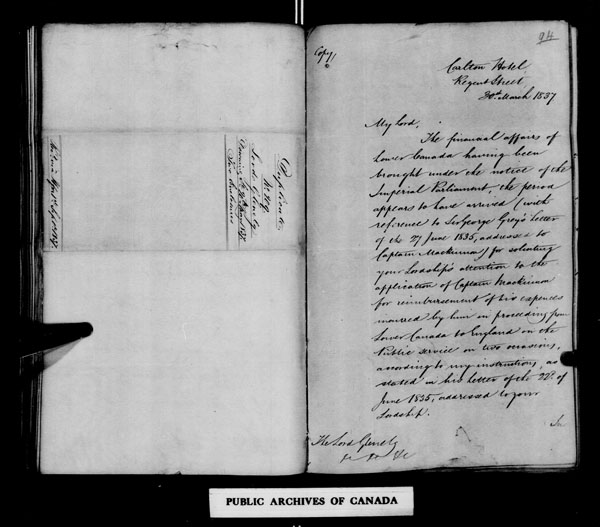 Duplicate
Lord Glenelg
Two Enclosures
94
Copy/
Carlton Hotel
Regent Street
30th March 1837
My Lord,
The financial affairs of
Lower Canada having been
brought under the notice of the
Imperial Parliament, the period
appears to have arrived (with
reference to Sir George Grey's Letter
of the 27 June 1835, addressed to
Captain Mackinnon) for soliciting
your Lordship's attention to the
application of Captain Mackinnon
for reimbursement of his expences
incurred by him in proceeding from
Lower Canada to England on the
Public service on two occasions,
according to my instructions, as
stated in his letter of the 22d. of
June 1835, addressed to your
Lordship.
The Lord Glenelg
&c &c &c
PUBLIC ARCHIVES OF CANADA